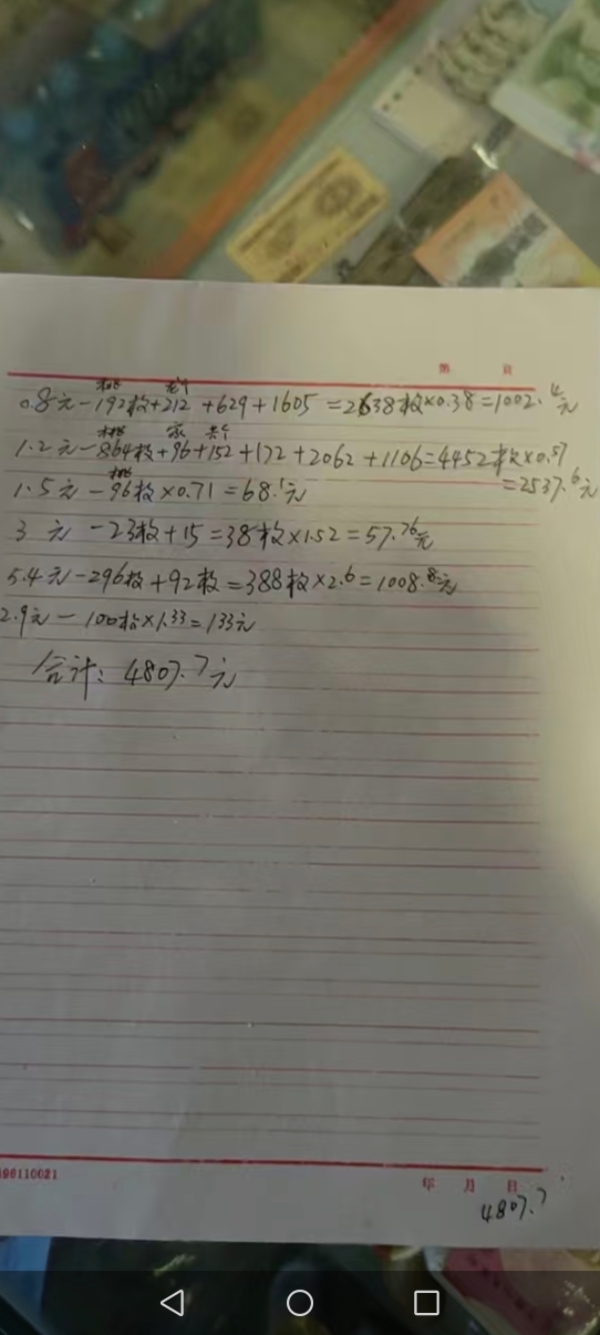 第 页
0.8元-192枚+212+629+1605=2638枚×0.38=1002.4元
1.2元-864枚+96+152+172+2062+1106=4452枚×0.57
=2537.6元
1.5元-96枚×0.71=68.1元
3元-23枚+15=38枚×1.52=57.76元
5.4元-296枚+92枚=388枚×2.6=1008.8元
2.9元-100枚×1.33=133元
合计:4807.7元
96110021 年 月 日
4807.7